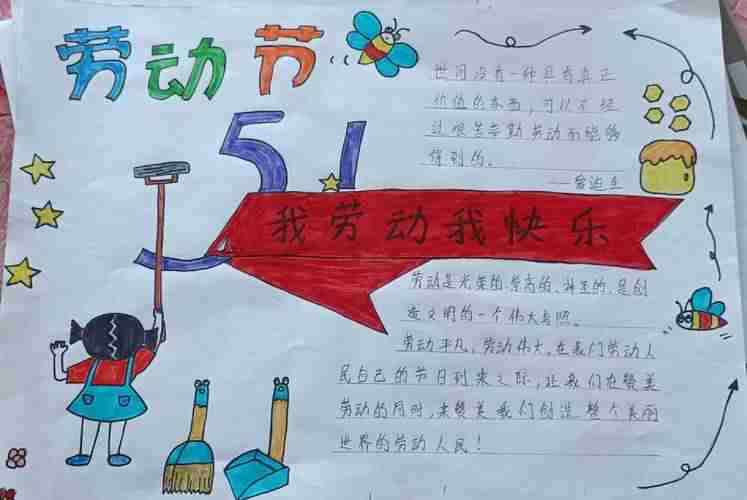 劳动节
世间没有一种具有真正
价值的东西，可以不经
过艰苦辛勤劳动而能够
得到的。
——爱迪生
5.1
我劳动我快乐
劳动是光荣的、崇高的、神圣的、是创
造文明的一个伟大
劳动平凡，劳动伟大。在我们劳动人
民自己的节日到来之际，让我们在赞美
劳动的同时，来赞美我们创造整个美丽
世界的劳动人民！